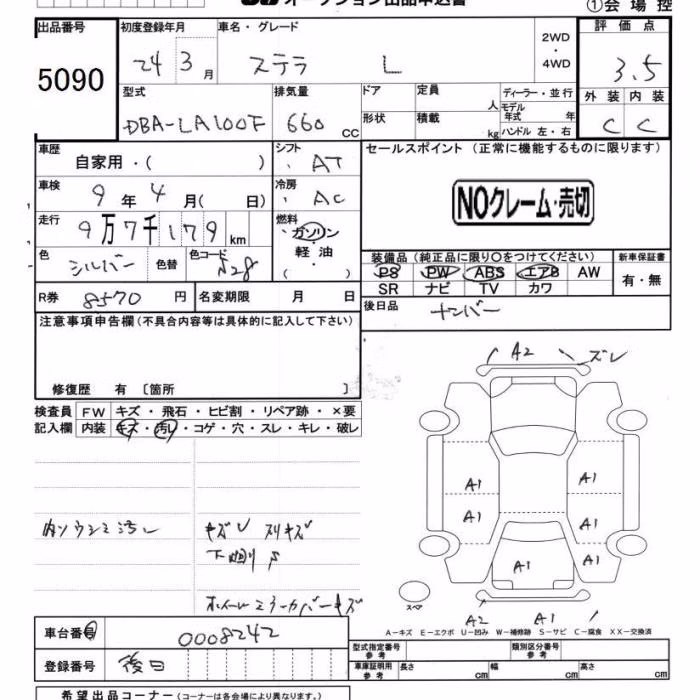 オークション出品申込書
①会場控
出品番号
5090
初度登録年月
24 3月
車名・グレード
ステラ L
2WD
・
4WD
評価点
3.5
型式
DBA-LA100F
排気量
660 CC
ドア
形状
定員
人
積載
kg
ディーラー・並行
モデル年式 年
ハンドル 左・右
外装 内装
C C
車歴
自家用・( )
シフト
AT
セールスポイント (正常に機能するものに限ります)
NOクレーム・売切
車検
9年4月( 日)
冷房
AC
走行
9万7千179km
燃料
ガソリン
軽油
( )
色
シルバー
色替
色コード
N28
装備品 (純正品に限り○をつけてください)
PS PW ABS エアB AW
SR ナビ TV カワ
新車保証書
有・無
R券 8570円
名変期限 月 日
後日品
ナンバー
注意事項申告欄 (不具合内容等は具体的に記入して下さい)
修復歴 有 〔箇所 〕
検査員記入欄
FW キズ・飛石・ヒビ割・リペア跡・×要
内装 キズ・汚レ・コゲ・穴・スレ・キレ・破レ
A2 ズレ
A1 A1
A1 A1
A1 A1
A2 A1
スペア
キズ
下廻りS
ホイールミラーカバーキズ
A-キズ E-エクボ U-凹み W-補修跡 S-サビ C-腐食 XX-交換済
車台番号
0008242
登録番号
後日
型式指定番号 参考
類別区分番号 参考
車庫証明用 参考
長さ cm
幅 cm
高さ cm
希望出品コーナー (コーナーは各会場により異なります。)